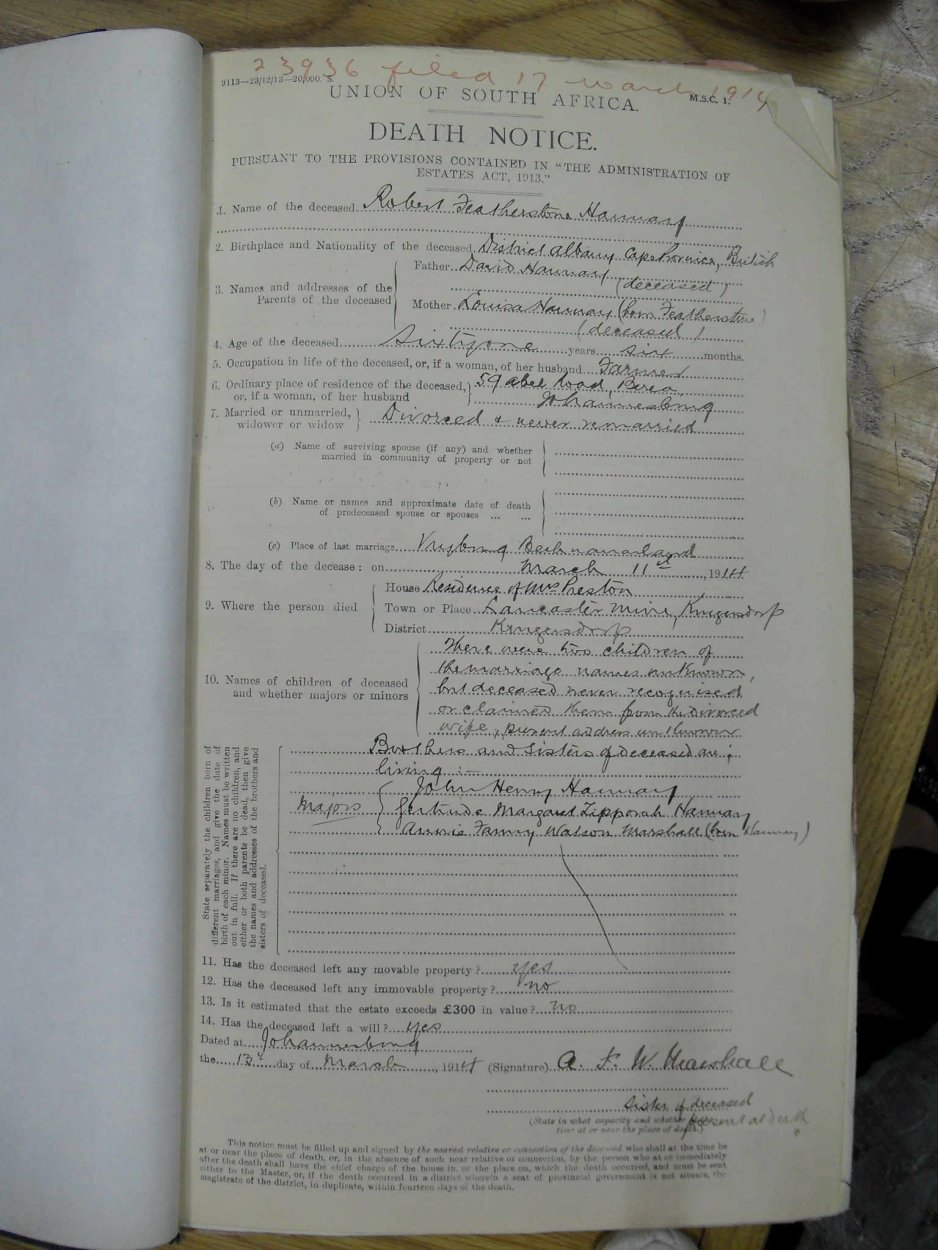 23936 filed 17 March 1914
9113—23/12/13—20,000. S.
UNION OF SOUTH AFRICA.
M.S.C. 1.
DEATH NOTICE.
PURSUANT TO THE PROVISIONS CONTAINED IN "THE ADMINISTRATION OF
ESTATES ACT, 1913."
1. Name of the deceased Robert Featherstone Hannay
2. Birthplace and Nationality of the deceased District Albany Cape Province, British
3. Names and addresses of the Parents of the deceased
Father David Hannay
(deceased)
Mother Louisa Hannay (born Featherstone)
(deceased)
4. Age of the deceased Sixty one years six months.
5. Occupation in life of the deceased, or, if a woman, of her husband Farmer
6. Ordinary place of residence of the deceased, 59 Abel Road, Berea
or, if a woman, of her husband Johannesburg
7. Married or unmarried, widower or widow Divorced & never remarried
(a) Name of surviving spouse (if any) and whether
married in community of property or not
(b) Name or names and approximate date of death
of predeceased spouse or spouses ... ...
(c) Place of last marriage Vryburg Bechuanaland
8. The day of the decease: on March 11th, 1914
9. Where the person died
House Residence of Mrs Preston
Town or Place Lancaster Mine, Krugersdorp
District Krugersdorp
10. Names of children of deceased
and whether majors or minors
There were two children of
the marriage names unknown,
but deceased never recognised
or claimed them from the divorced
wife, present address unknown
State separately the children born of
different marriages, and give the date of
birth of each minor. Names must be written
out in full. If there are no children, and
either or both parents be dead, then give
the names and addresses of the brothers and
sisters of deceased.
Brothers and Sisters of deceased are;
living:—
John Henry Hannay
Majors Gertrude Margaret Zipporah Hannay
Annie Fanny Watson Marshall (born Hannay)
11. Has the deceased left any movable property? yes
12. Has the deceased left any immovable property? no
13. Is it estimated that the estate exceeds £300 in value? no
14. Has the deceased left a will? yes
Dated at Johannesburg
the 13th day of March, 1914 (Signature) A. F. W. Marshall
Sister of deceased
present at death
(State in what capacity and whether
time at or near the place of death.)
This notice must be filled up and signed by the nearest relative or connection of the deceased who shall at the time be
at or near the place of death, or, in the absence of such near relative or connection, by the person who at or immediately
after the death shall have the chief charge of the house in, or the place on, which the death occurred, and must be sent
either to the Master, or, if the death occurred in a district wherein a seat of provincial government is not situate, the
magistrate of the district, in duplicate, within fourteen days of the death.